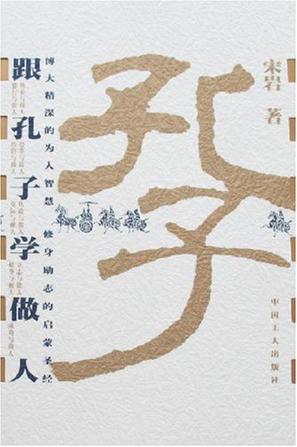 跟孔子学做人
博大精深的为人智慧 修身励志的启蒙圣经
孔子
宋岩 著
中国工人出版社